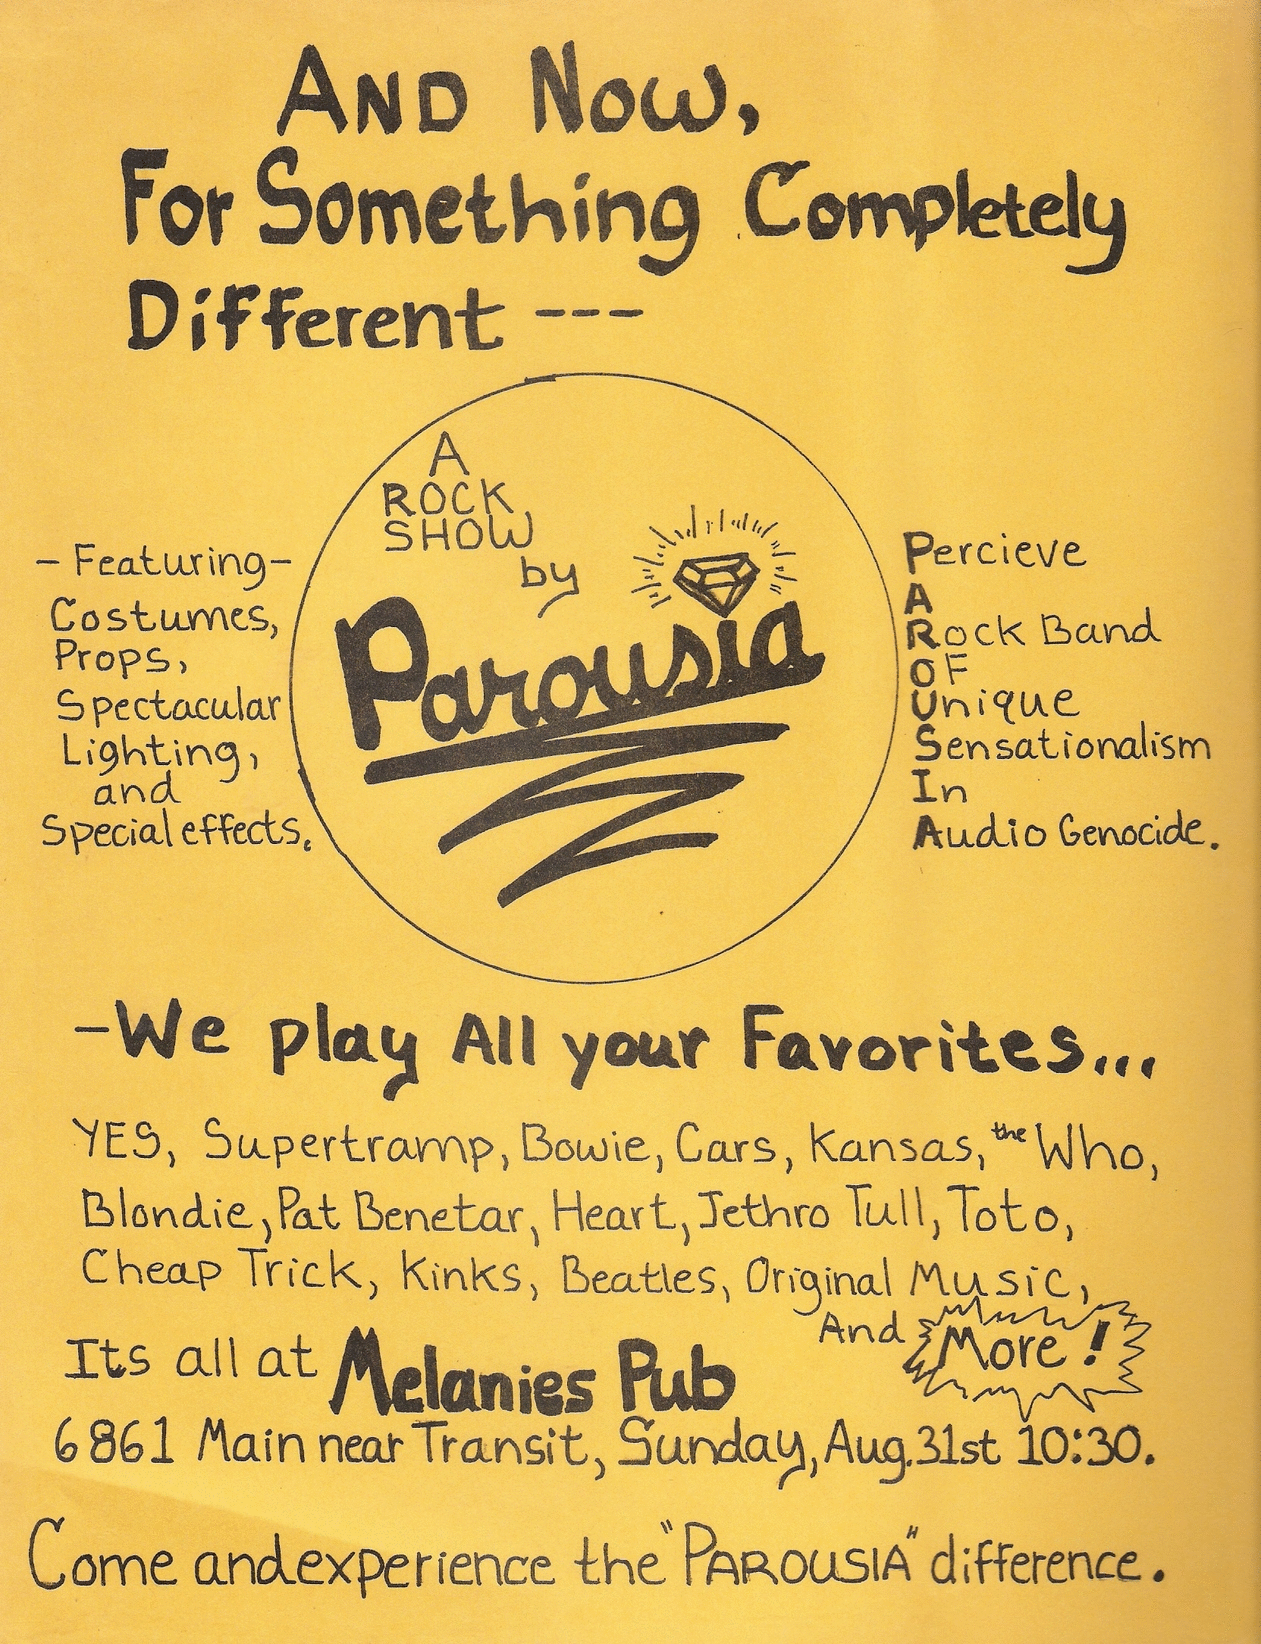 AND NOW,
For Something Completely
Different ---
A
ROCK
SHOW
by
Parousia
- Featuring-
Costumes,
Props,
Spectacular
Lighting,
and
Special effects.
Percieve
A
Rock Band
OF
Unique
Sensationalism
In
Audio Genocide.
-We play All your Favorites...
YES, Supertramp, Bowie, Cars, Kansas, the Who,
Blondie, Pat Benetar, Heart, Jethro Tull, Toto,
Cheap Trick, Kinks, Beatles, Original Music,
And More!
Its all at Melanies Pub
6861 Main near Transit, Sunday, Aug. 31st 10:30.
Come and experience the "PAROUSIA" difference.